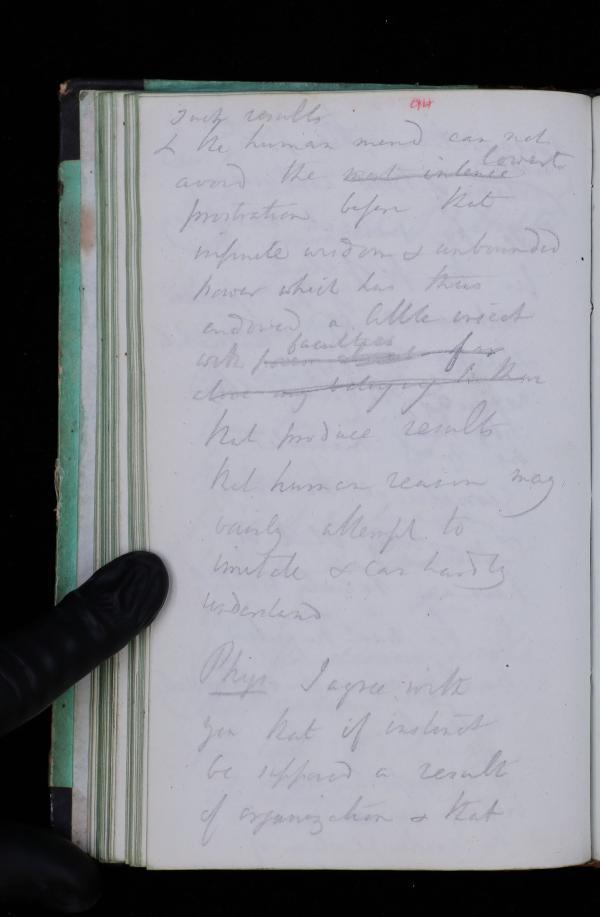 94
such results
& the human mind can not
lowest
avoid the most intense
prostration before that
infinite wisdom & unbounded
power which has thus
endowed a little insect
faculties
with power far
above any belonging to
that produce results
that human reason may
vainly attempt to
imitate & can hardly
understand
Phys I agree with
you that if instinct
be supposed a result
of organization & that